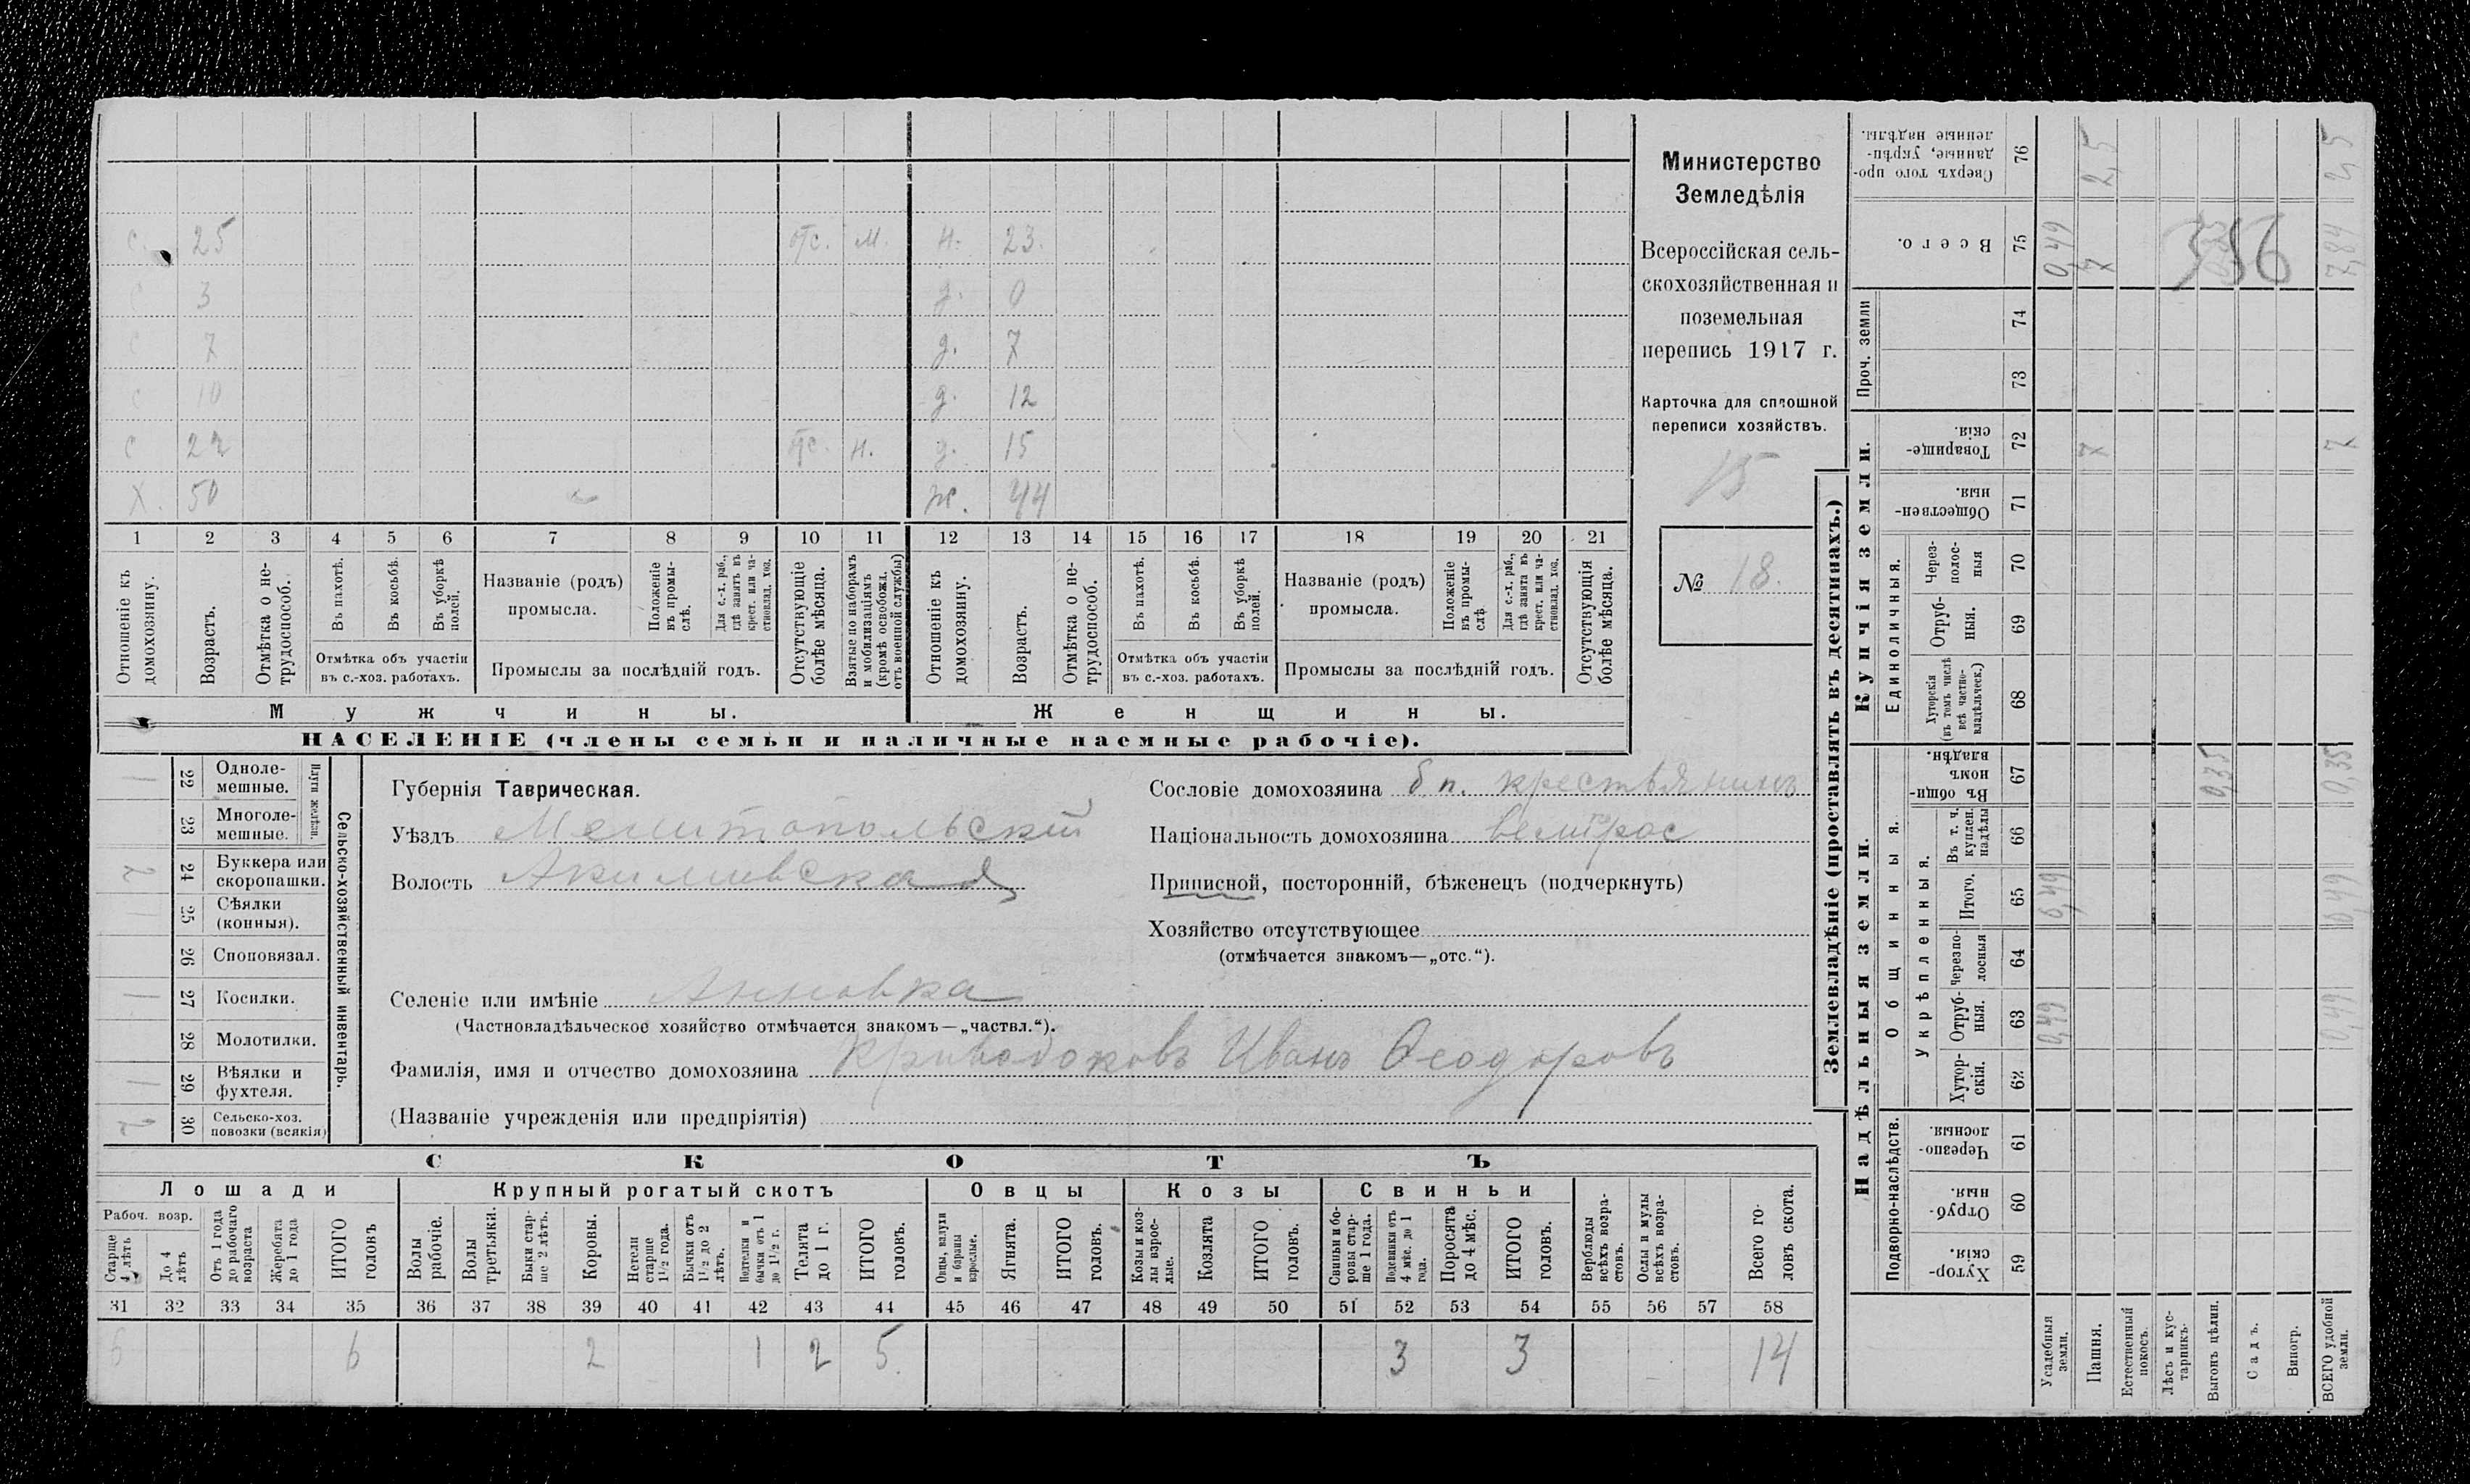 с. 25 отс. м. н. 23.
с 3 д. 0
с 7 д. 7
с 10 д. 12
с 22 отс. н. д. 15
х. 50 ж. 44
1 2 3 4 5 6 7 8 9 10 11 12 13 14 15 16 17 18 19 20 21
Отношеніе къ домохозяину.
Возрастъ.
Отмѣтка о не-трудоспособ.
Въ пахотѣ.
Въ косьбѣ.
Въ уборкѣ полей.
Отмѣтка объ участіи
въ с.-хоз. работахъ.
Названіе (родъ)
промысла.
Положеніе въ промы-слѣ.
Для с.-х. раб., гдѣ занятъ въ крест. или ча-стновлад. хоз.
Промыслы за послѣдній годъ.
Отсутствующіе болѣе мѣсяца.
Взятые по наборамъ и мобилизаціямъ (кромѣ освобожд. отъ военной службы)
Отношеніе къ домохозяину.
Возрастъ.
Отмѣтка о не-трудоспособ.
Въ пахотѣ.
Въ косьбѣ.
Въ уборкѣ полей.
Отмѣтка объ участіи
въ с.-хоз. работахъ.
Названіе (родъ)
промысла.
Положеніе въ промы-слѣ
Для с.-х. раб., гдѣ занята въ крест. или ча-стновлад. хоз.
Промыслы за послѣдній годъ.
Отсутствующія болѣе мѣсяца.
Мужчины.
Женщины.
НАСЕЛЕНІЕ (члены семьи и наличные наемные рабочіе).
Министерство
Земледѣлія
Всероссійская сель-
скохозяйственная и
поземельная
перепись 1917 г.
Карточка для сплошной
переписи хозяйствъ.
15
№ 18.
1 22 Одноле-
мешные.
23 Многоле-
мешные.
Плуги желѣзн.
2 24 Буккера или
скоропашки.
1 25 Сѣялки
(конныя).
26 Сноповязал.
1 27 Косилки.
28 Молотилки.
1 29 Вѣялки и
фухтеля.
2 30 Сельско-хоз.
повозки (всякія)
Сельско-хозяйственный инвентарь.
Губернія Таврическая.
Уѣздъ Мелитопольскій
Волость Акимовская
Сословіе домохозяина б. п. крестьянинъ
Національность домохозяина великорос
Приписной, посторонній, бѣженецъ (подчеркнуть)
Хозяйство отсутствующее
(отмѣчается знакомъ—„отс.“).
Селеніе или имѣніе Анновка
(Частновладѣльческое хозяйство отмѣчается знакомъ—„частвл.“).
Фамилія, имя и отчество домохозяина Иванъ Ѳеодоровъ
(Названіе учрежденія или предпріятія)
СКОТЪ
Лошади Крупный рогатый скотъ Овцы Козы Свиньи
Рабоч. возр.
Старше 4 лѣтъ
До 4 лѣтъ
Отъ 1 года до рабочаго возраста
Жеребята до 1 года
ИТОГО головъ
Волы рабочіе.
Волы третьяки.
Быки стар-ше 2 лѣтъ.
Коровы.
Нетели старше 1 1/2 года.
Бычки отъ 1 1/2 до 2 лѣтъ.
Подтелки и бычки отъ 1 до 1 1/2 г.
Телята до 1 г.
ИТОГО головъ.
Овцы, валухи и бараны взрослые.
Ягнята.
ИТОГО головъ.
Козы и коз-лы взрос-лые.
Козлята
ИТОГО головъ.
Свиньи и бо-ровы стар-ше 1 года.
Подсвинки отъ 4 мѣс. до 1 года.
Поросята до 4 мѣс.
ИТОГО головъ.
Верблюды всѣхъ возра-стовъ.
Ослы и мулы всѣхъ возра-стовъ.
Всего го-ловъ скота.
31 32 33 34 35 36 37 38 39 40 41 42 43 44 45 46 47 48 49 50 51 52 53 54 55 56 57 58
6 6 2 1 2 5. 3 3 14
Землевладѣніе (проставлять въ десятинахъ.)
Сверхъ того про-данные, укрѣп-ленные надѣлы. 76 2,5 2,5
Всего. 75 0,49 7 7,84
356
Проч. земли
74
73
Купчія земли.
Товарище-скія. 72 7 7
Обществен-ныя. 71
Единоличныя.
Через-полос-ныя 70
Отруб-ныя. 69
Хуторскія (въ томъ числѣ всѣ частно-владѣльческ.) 68
Надѣльныя земли.
Общинныя.
Въ общин-номъ владѣн. 67 0,35 0,35
Укрѣпленныя.
Въ т. ч. куплен. надѣлы 66
Итого. 65 0,49 0,49
Черезпо-лосныя 64
Отруб-ныя. 63 0,49 0,49
Хутор-скія. 62
Подворно-наслѣдств.
Черезпо-лосныя. 61
Отруб-ныя. 60
Хутор-скія. 59
Усадебныя земли.
Пашня.
Естественный покосъ.
Лѣсъ и кус-тарникъ.
Выгонъ цѣлин.
Садъ.
Виногр.
ВСЕГО удобной земли.